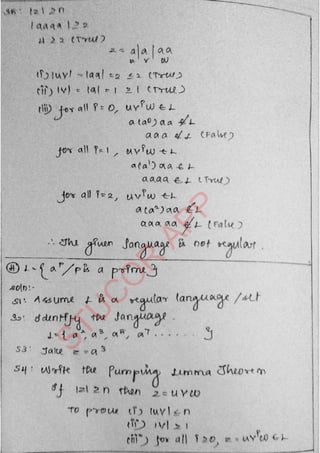 S5: |z| ≥ n
|aaaa| ≥ 2
4 ≥ 2 (True)
z = a|a|aa
u v w
(i) |uv| = |aa| = 2 ≤ 2 (True)
(ii) |v| = |a| = 1 ≥ 1 (True)
(iii) for all i = 0, uvⁱw ∈ L
a(a⁰)aa ∉ L
aaa ∉ L (False)
for all i=1, uvⁱw ∈ L
a(a¹)aa ∈ L
aaaa ∈ L (True)
for all i=2, uvⁱw ∈ L
a(a²)aa ∉ L
aaaaa ∉ L (False)
∴ The given language is not regular.
L = { aᵖ / p is a prime }
Soln:-
S1: Assume L is a regular language / set
S2: Identify the language.
L = { a², a³, a⁵, a⁷ ...... }
S3: Take z = a³
S4: Write the Pumping Lemma Theorem
If |z| ≥ n then z = uvw
To prove (i) |uv| ≤ n
(ii) |v| ≥ 1
(iii) for all i ≥ 0, z = uvⁱw ∈ L
STUCOR APP